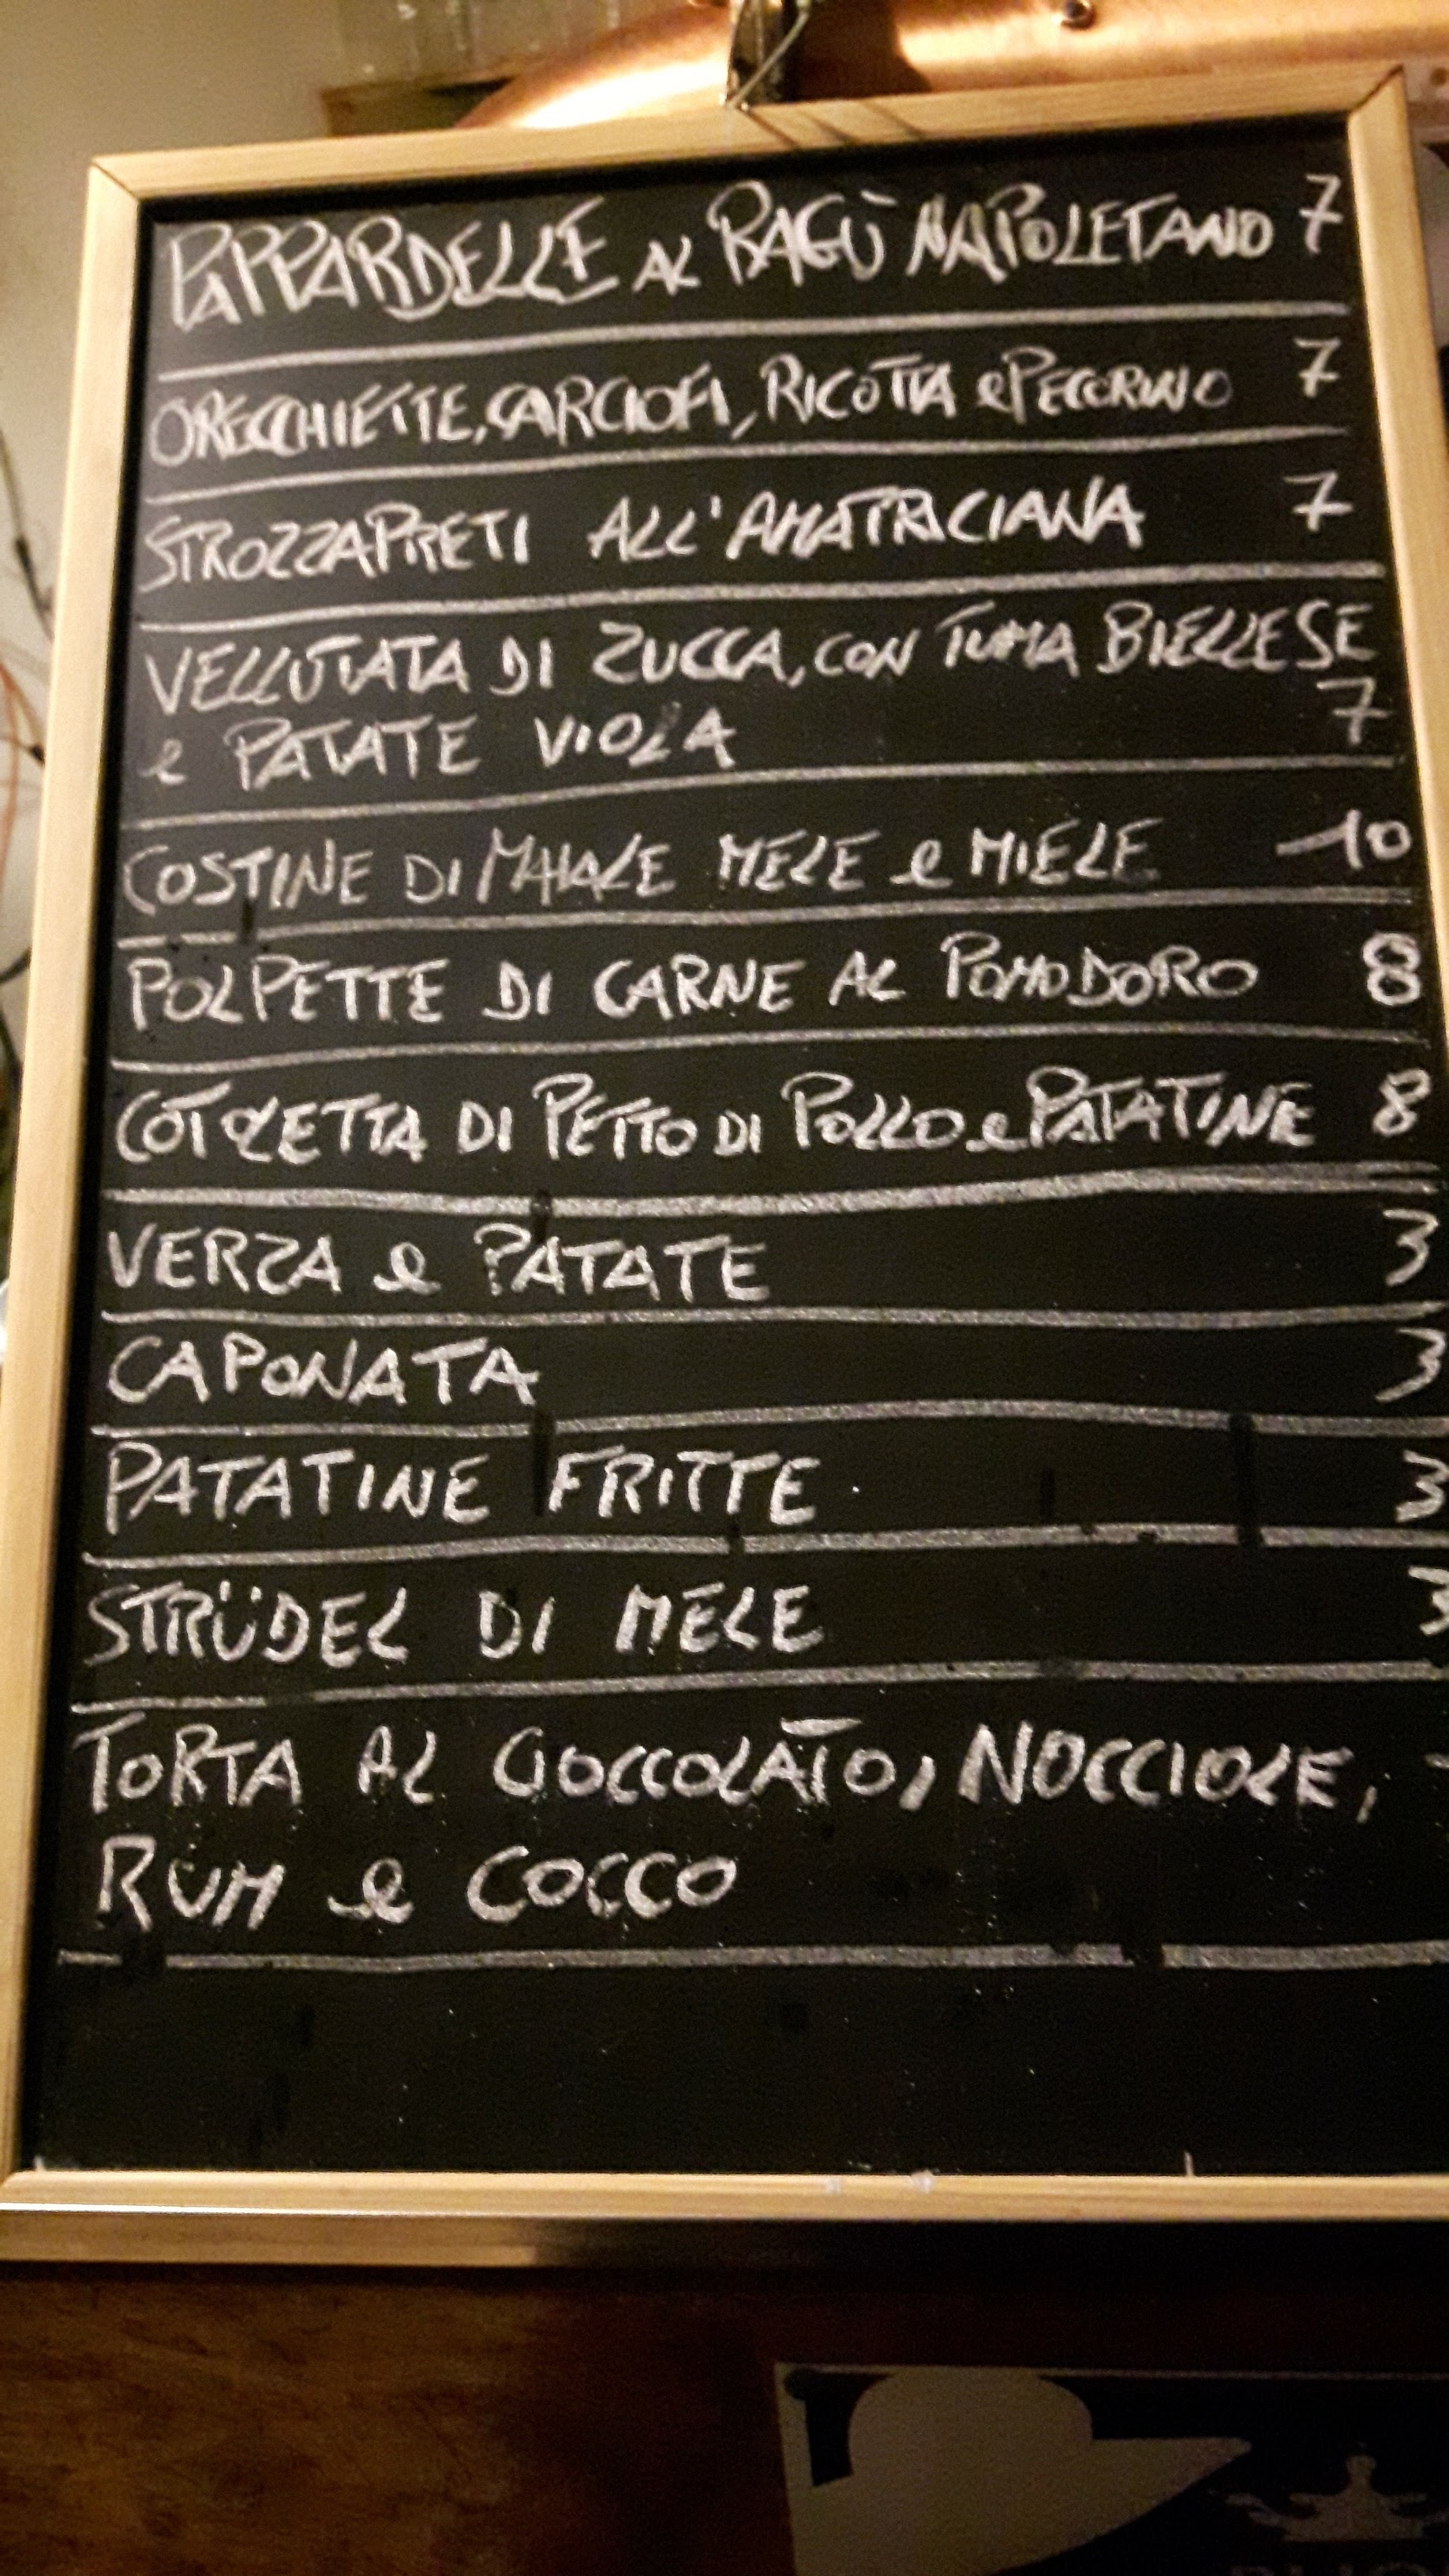 PAPPARDELLE AL RAGÙ NAPOLETANO 7
ORECCHIETTE, CARCIOFI, RICOTTA e PECORINO 7
STROZZAPRETI ALL'AMATRICIANA 7
VELLUTATA DI ZUCCA, CON TUMA BIELLESE
e PATATE VIOLA 7
COSTINE DI MAIALE MELE e MIELE 10
POLPETTE DI CARNE AL POMODORO 8
COTOLETTA DI PETTO DI POLLO e PATATINE 8
VERZA e PATATE 3
CAPONATA 3
PATATINE FRITTE 3
STRÜDEL DI MELE 3
TORTA AL CIOCCOLATO, NOCCIOLE,
RUM e COCCO